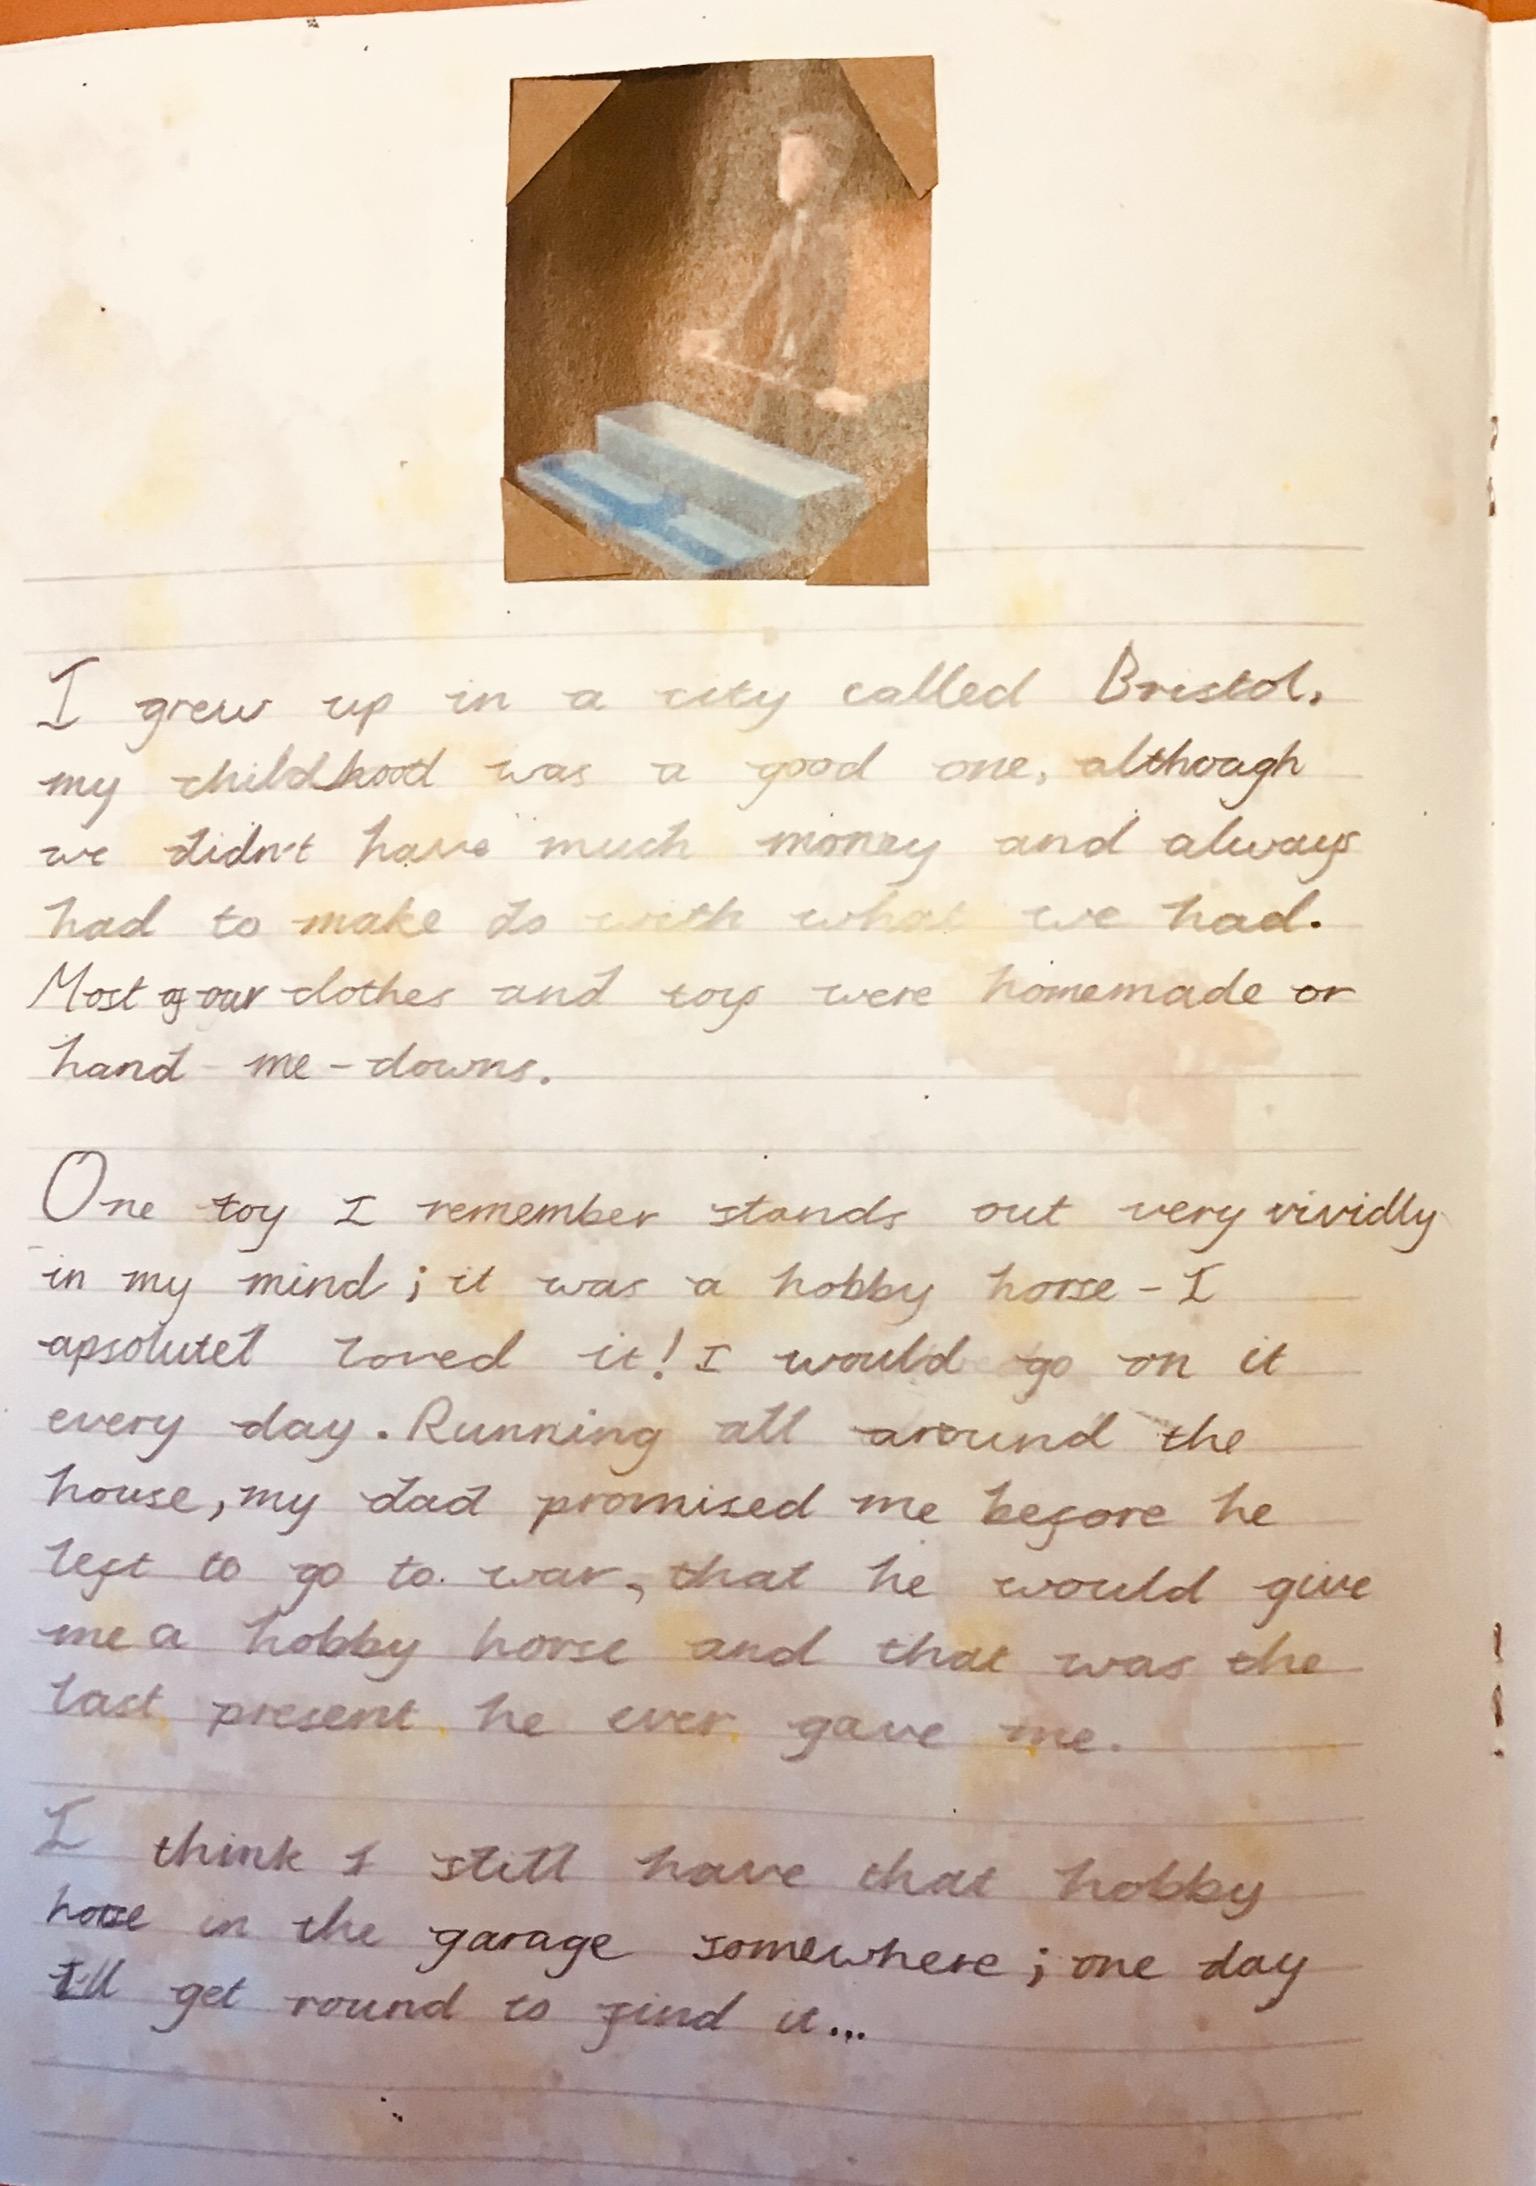 I grew up in a city called Bristol,
my childhood was a good one, although
we didn't have much money and always
had to make do with what we had.
Most of our clothes and toys were homemade or
hand-me-downs.
One toy I remember stands out very vividly
in my mind; it was a hobby horse - I
apsolutel loved it! I would go on it
every day. Running all around the
house, my dad promised me before he
left to go to war, that he would give
me a hobby horse and that was the
last present he ever gave me.
I think I still have that hobby
horse in the garage somewhere; one day
I'll get round to find it...